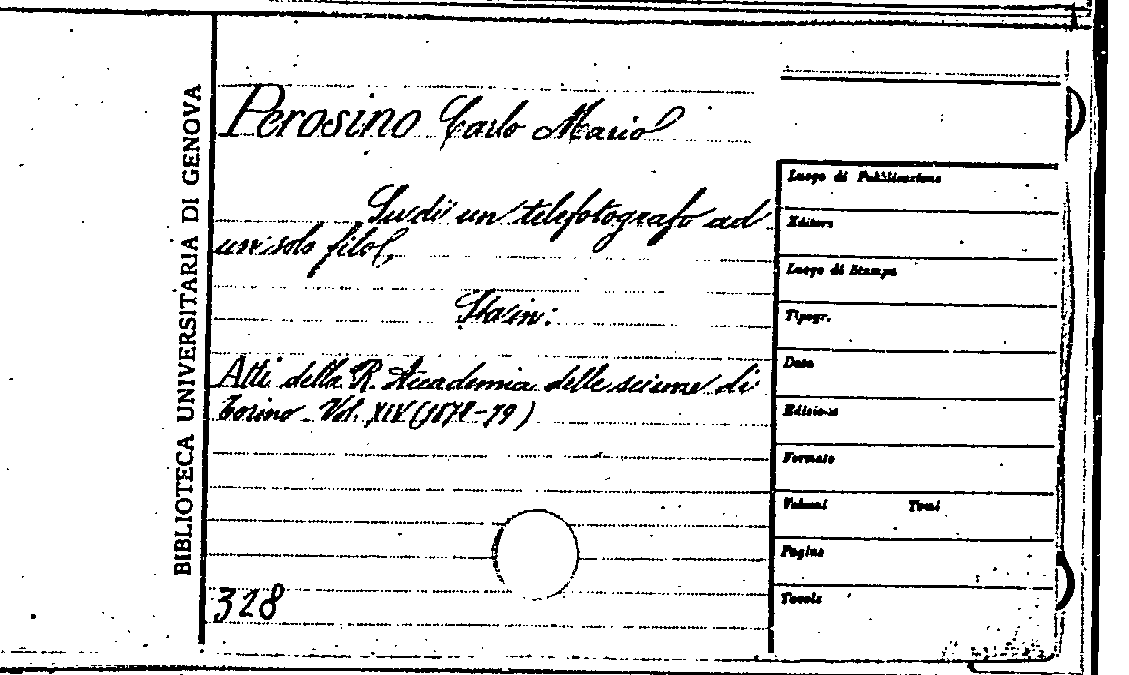 BIBLIOTECA UNIVERSITARIA DI GENOVA
Perosino Carlo Mario
Su di un telefotografo ad
un solo filo,
Sta in:
Atti della R. Accademia delle scienze di
Torino - Vol. XIV (1878-79)
328
Luogo di Pubblicazione
Editore
Luogo di Stampa
Tipogr.
Data
Edizione
Formato
Volumi Tomi
Pagine
Tavole